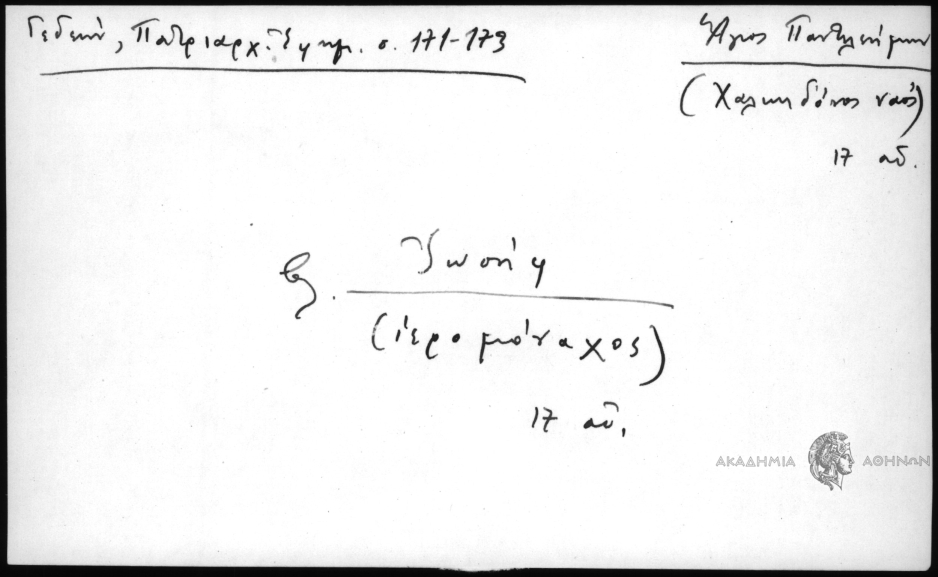 Γεδεών, Πατριαρχ. Ἐφημ. σ. 171-173
Ἅγιος Παντελεήμων
(Χαλκηδόνος ναός)
17 αἰ.
βλ. Ἰωσήφ
(ἱερομόναχος)
17 αἰ.
ΑΚΑΔΗΜΙΑ ΑΘΗΝΩΝ